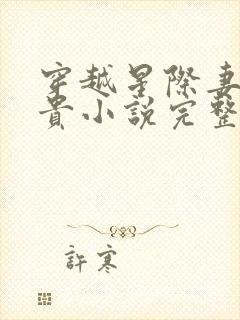 穿越星際妻
貴小說完整
許寒